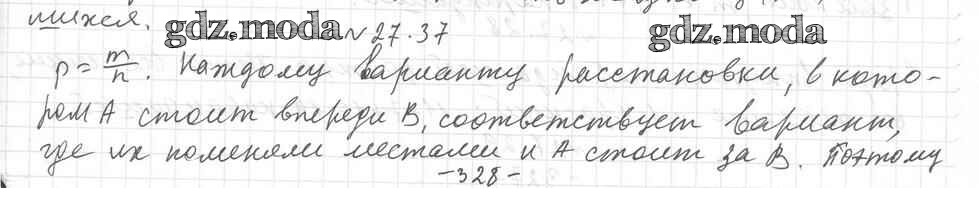 шихся. gdz.moda №27.37 gdz.moda
p = m/n. Каждому варианту расстановки, в кото-
ром А стоит впереди В, соответствует вариант,
где их поменяли местами и А стоит за В. Поэтому
-328-